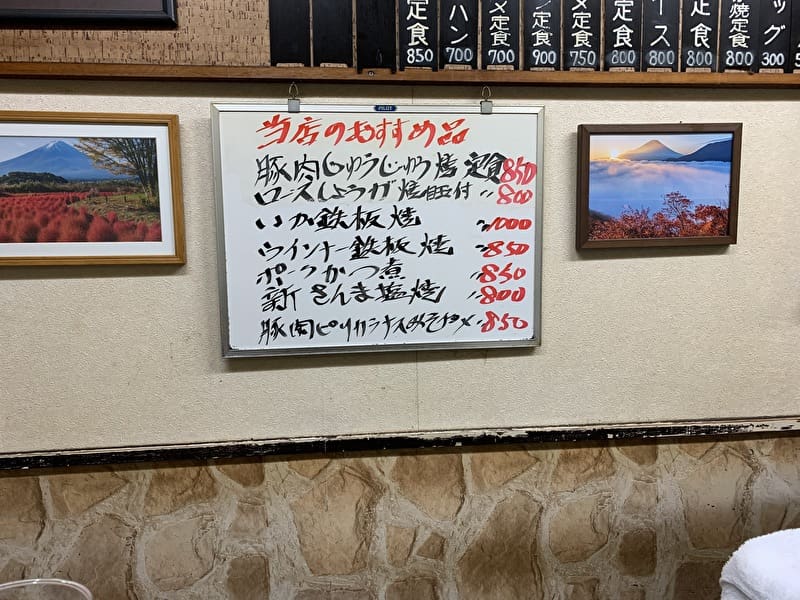 定食 850
ハン 700
メ定食 700
ン定食 900
メ定食 750
定食 800
ース 800
定食 800
焼定食 800
ッグ 300
PILOT
当店のおすすめ品
豚肉じゅうじゅう焼定食 850
ロースしょうが焼目玉付 〃 800
いか鉄板焼 〃 1000
ウインナー鉄板焼 〃 850
ポークかつ煮 〃 850
新さんま塩焼 〃 800
豚肉ピリカラナスみそ炒メ 〃 850